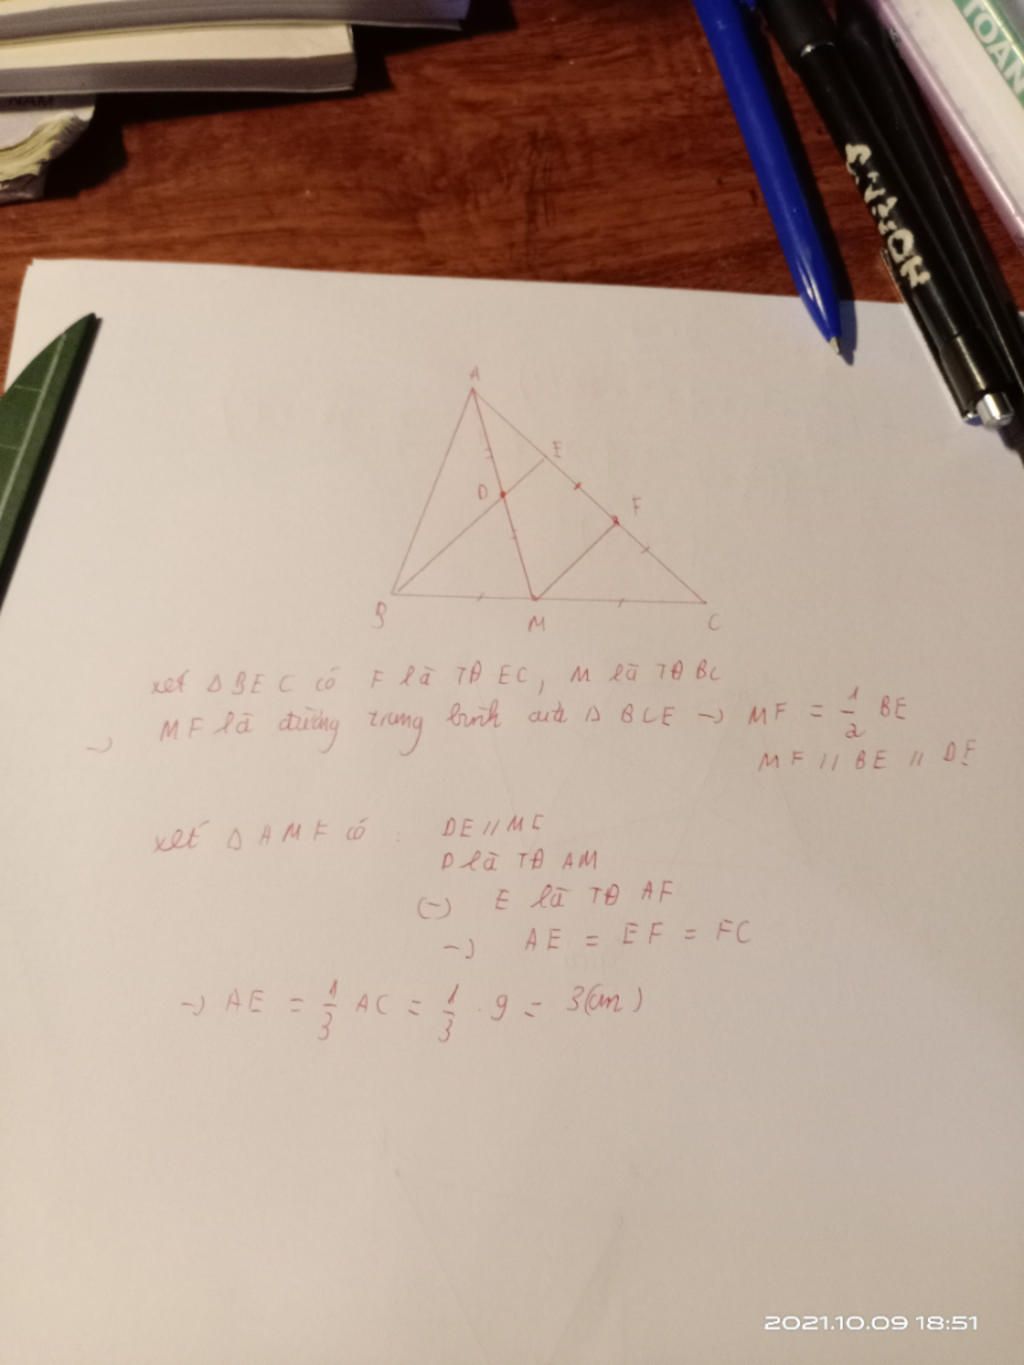 NAM
TOÁN
A
E
D
F
B
M
C
xét Δ BEC có F là TĐ EC, M là TĐ BC
→ MF là đường trung bình của Δ BCE → MF = 1/2 BE
MF // BE // DE
xét Δ AMF có : DE // MF
D là TĐ AM
(→) E là TĐ AF
→ AE = EF = FC
→ AE = 1/3 AC = 1/3 . 9 = 3(cm)
2021.10.09 18:51